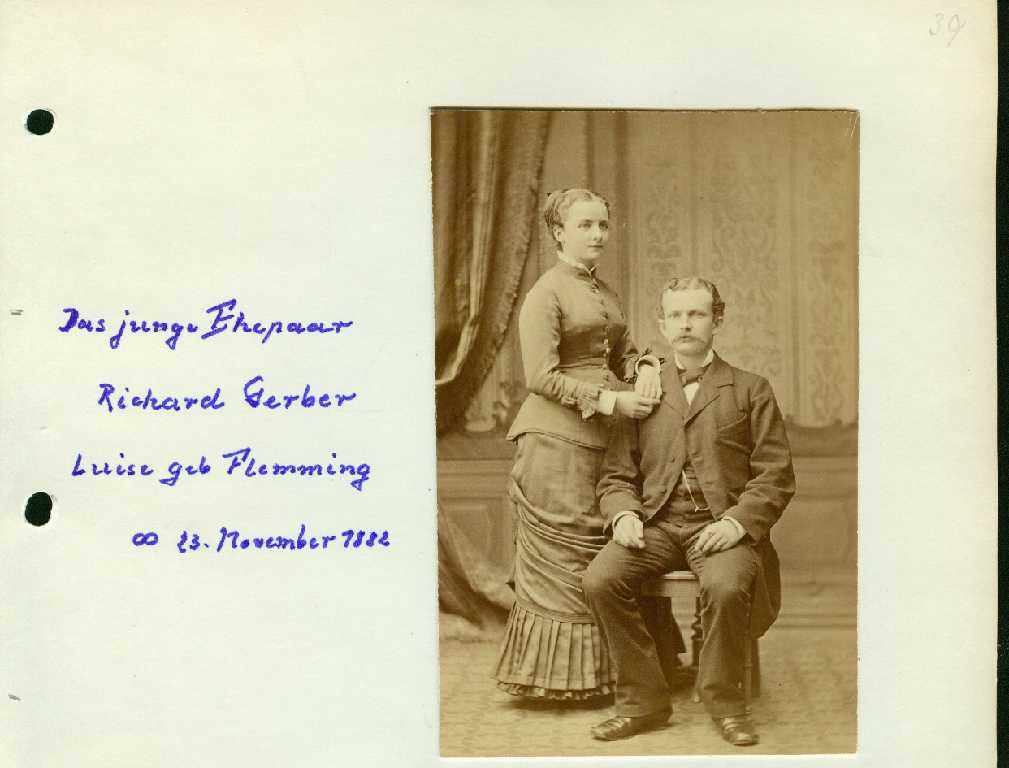 39
Das junge Ehepaar
Richard Gerber
Luise geb Flemming
∞ 23. November 1882